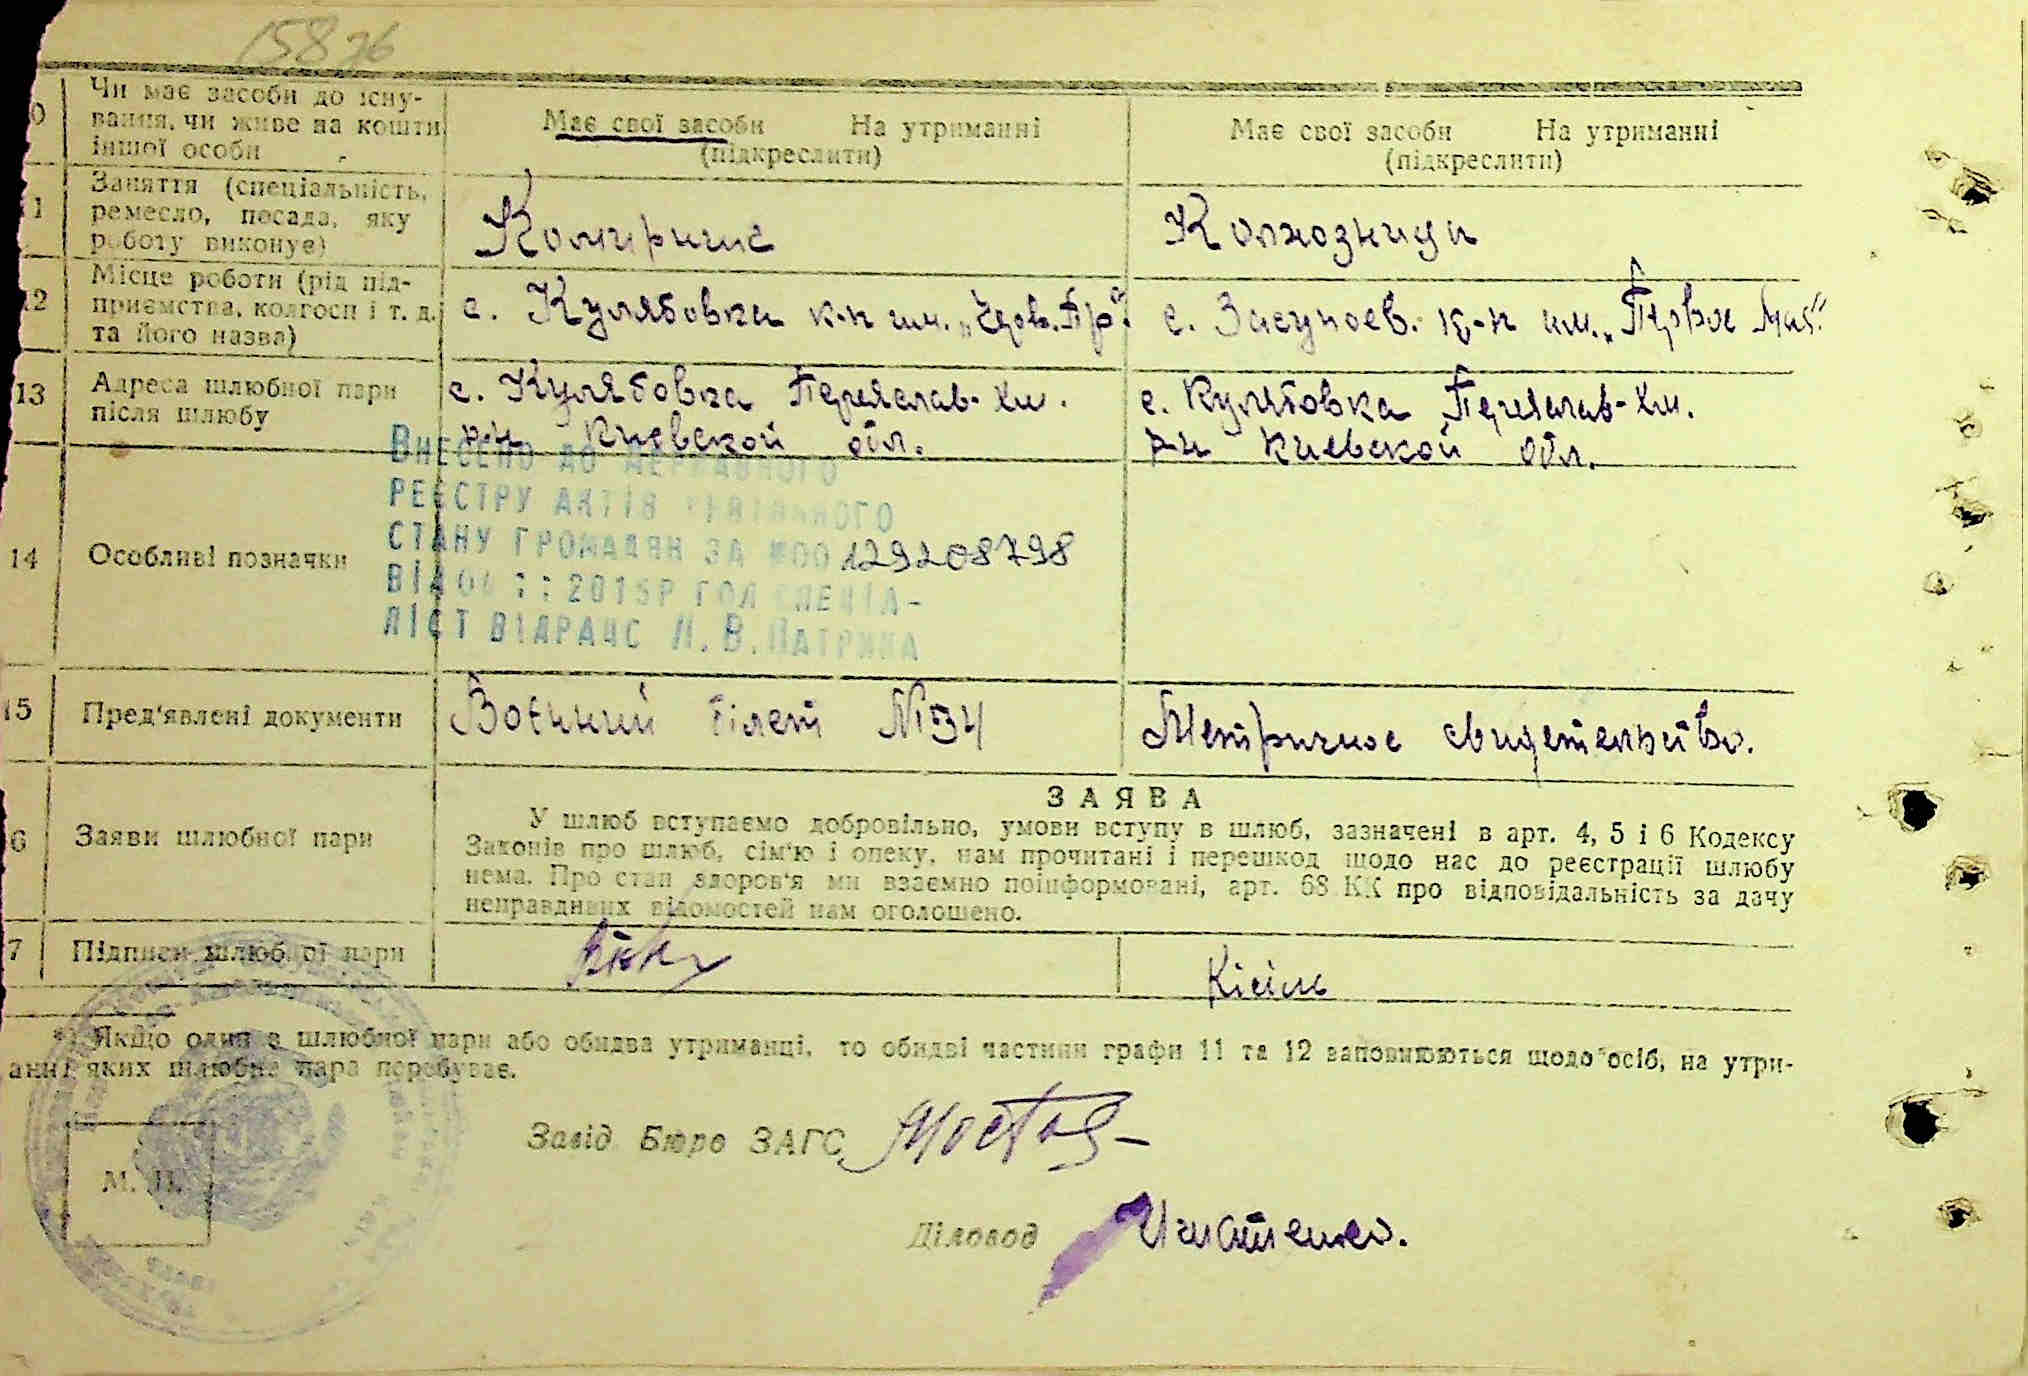 158 зб
Чи має засоби до існу-
вання, чи живе на кошти
іншої особи
Має свої засоби На утриманні
(підкреслити)
Має свої засоби На утриманні
(підкреслити)
Заняття (спеціальність,
ремесло, посада, яку
роботу виконує)
Колхозница
12
Місце роботи (рід під-
приємства, колгосп і т. д.
та його назва)
с. Кулябовка к-п им.
с. Засупоев. к-п им. „Первое Мая"
13
Адреса шлюбної пари
після шлюбу
с. Кулябовка Переяслав-Хм.
р-н Киевской обл.
с. Кулябовка Переяслав-Хм.
р-н Киевской обл.
14
Особливі позначки
Внесено до державного
реєстру актів цивільного
стану громадян за №00129208798
2015р
ліст відрацс
15
Пред'явлені документи
Воєнний білет №
Метричное свидетельство.
6
Заяви шлюбної пари
ЗАЯВА
У шлюб вступаємо добровільно, умови вступу в шлюб, зазначені в арт. 4, 5 і 6 Кодексу
Законів про шлюб, сім'ю і опеку, нам прочитані і перешкод щодо нас до реєстрації шлюбу
нема. Про стан здоров'я ми взаємно поінформовані, арт. 68 КК про відповідальність за дачу
неправдивих відомостей нам оголошено.
7
Підписи шлюбної пари
Кісіль
*) Якщо один з шлюбної пари або обидва утриманці, то обидві частини графи 11 та 12 заповнюються щодо осіб, на утри-
анні яких шлюбна пара перебуває.
Завід. Бюро ЗАГС
М. П.
Діловод Игнатенко.